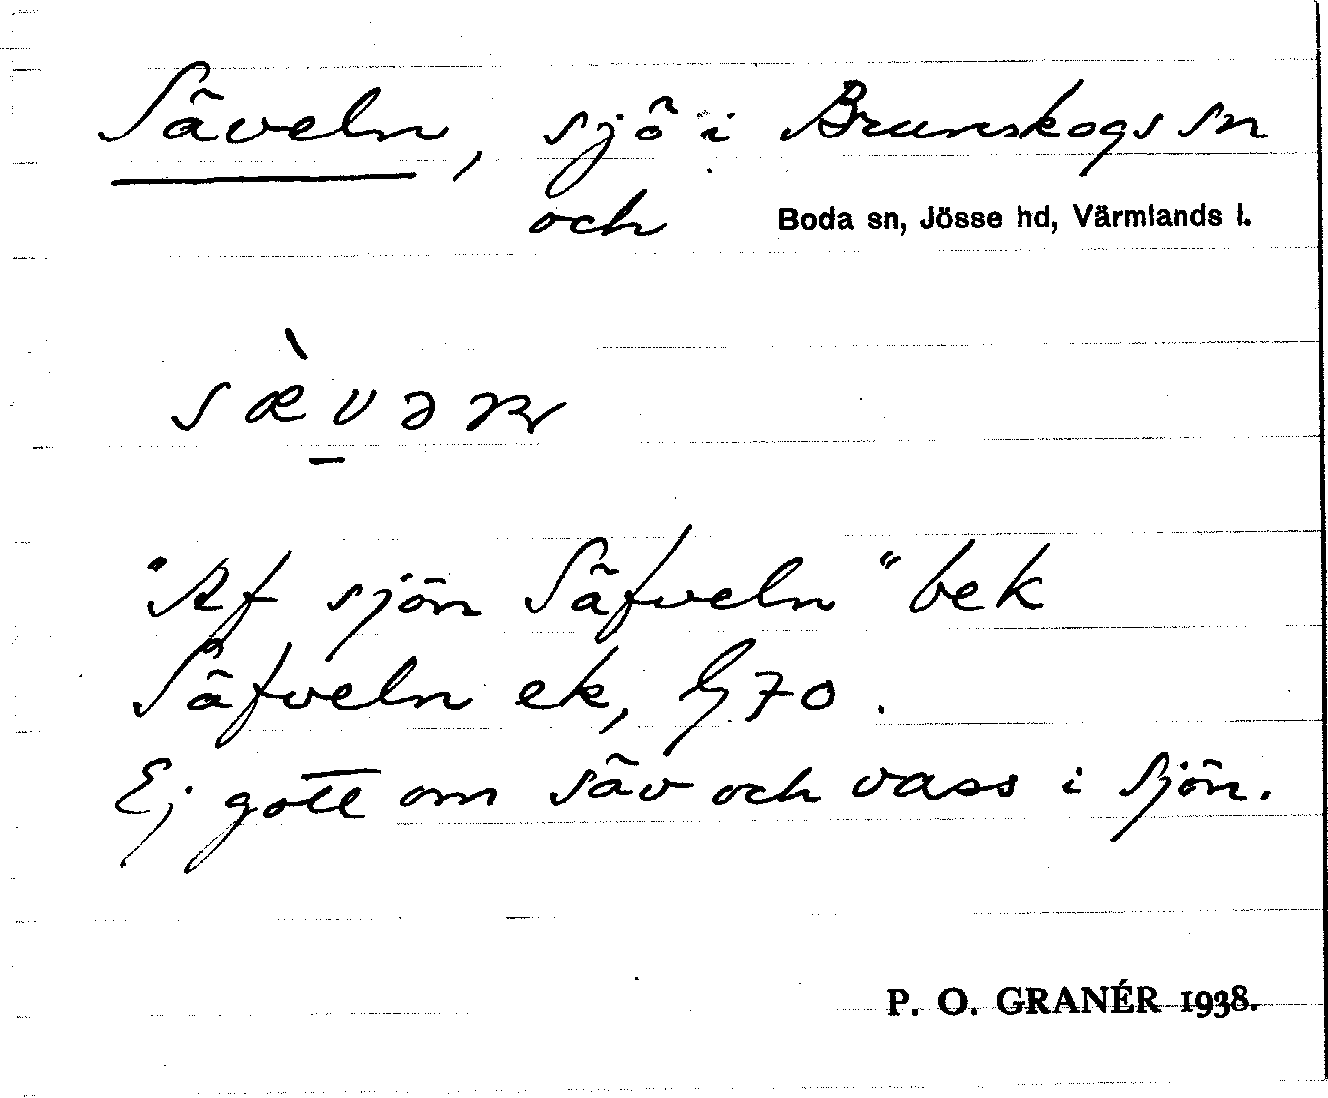 Säveln, sjö i Brunskogs sn
och Boda sn, Jösse hd, Värmlands l.
"Af sjön Säfveln" bek
Säfveln ek, G 70.
Ej gott om säv och vass i sjön.
P. O. GRANÉR 1938.